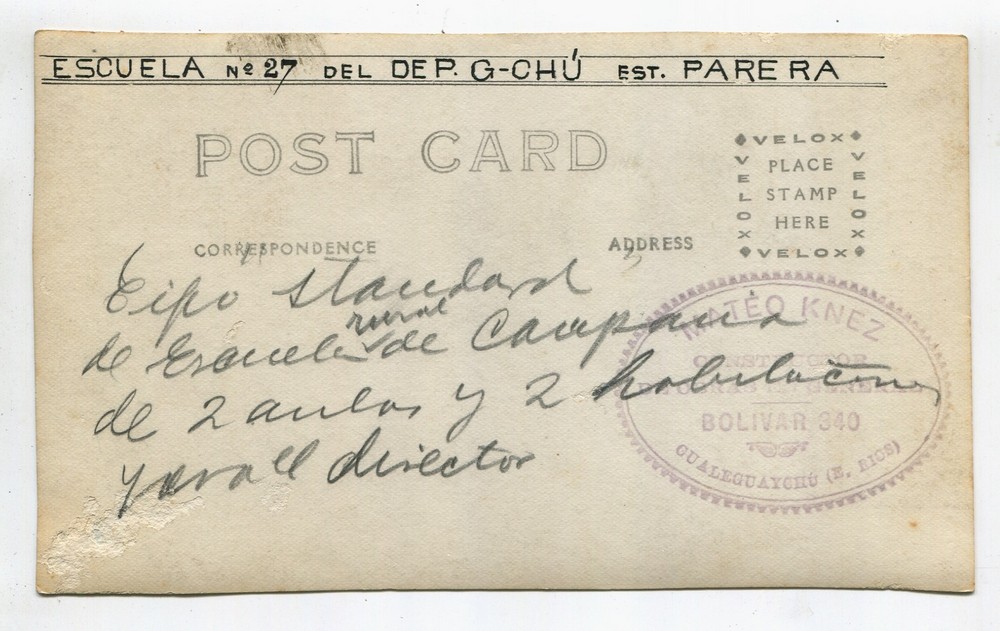 ESCUELA Nº 27 DEL DEP. G-CHÚ EST. PARERA
POST CARD
VELOX
VELOX PLACE VELOX
STAMP
HERE
VELOX
CORRESPONDENCE
ADDRESS
Tipo standard
de Escuela rural de Campaña
de 2 aulas y 2 habitaciones
para el director
MATEO KNEZ
CONSTRUCTOR
DE OBRAS EN GENERAL
BOLIVAR 340
GUALEGUAYCHÚ (E. RIOS)